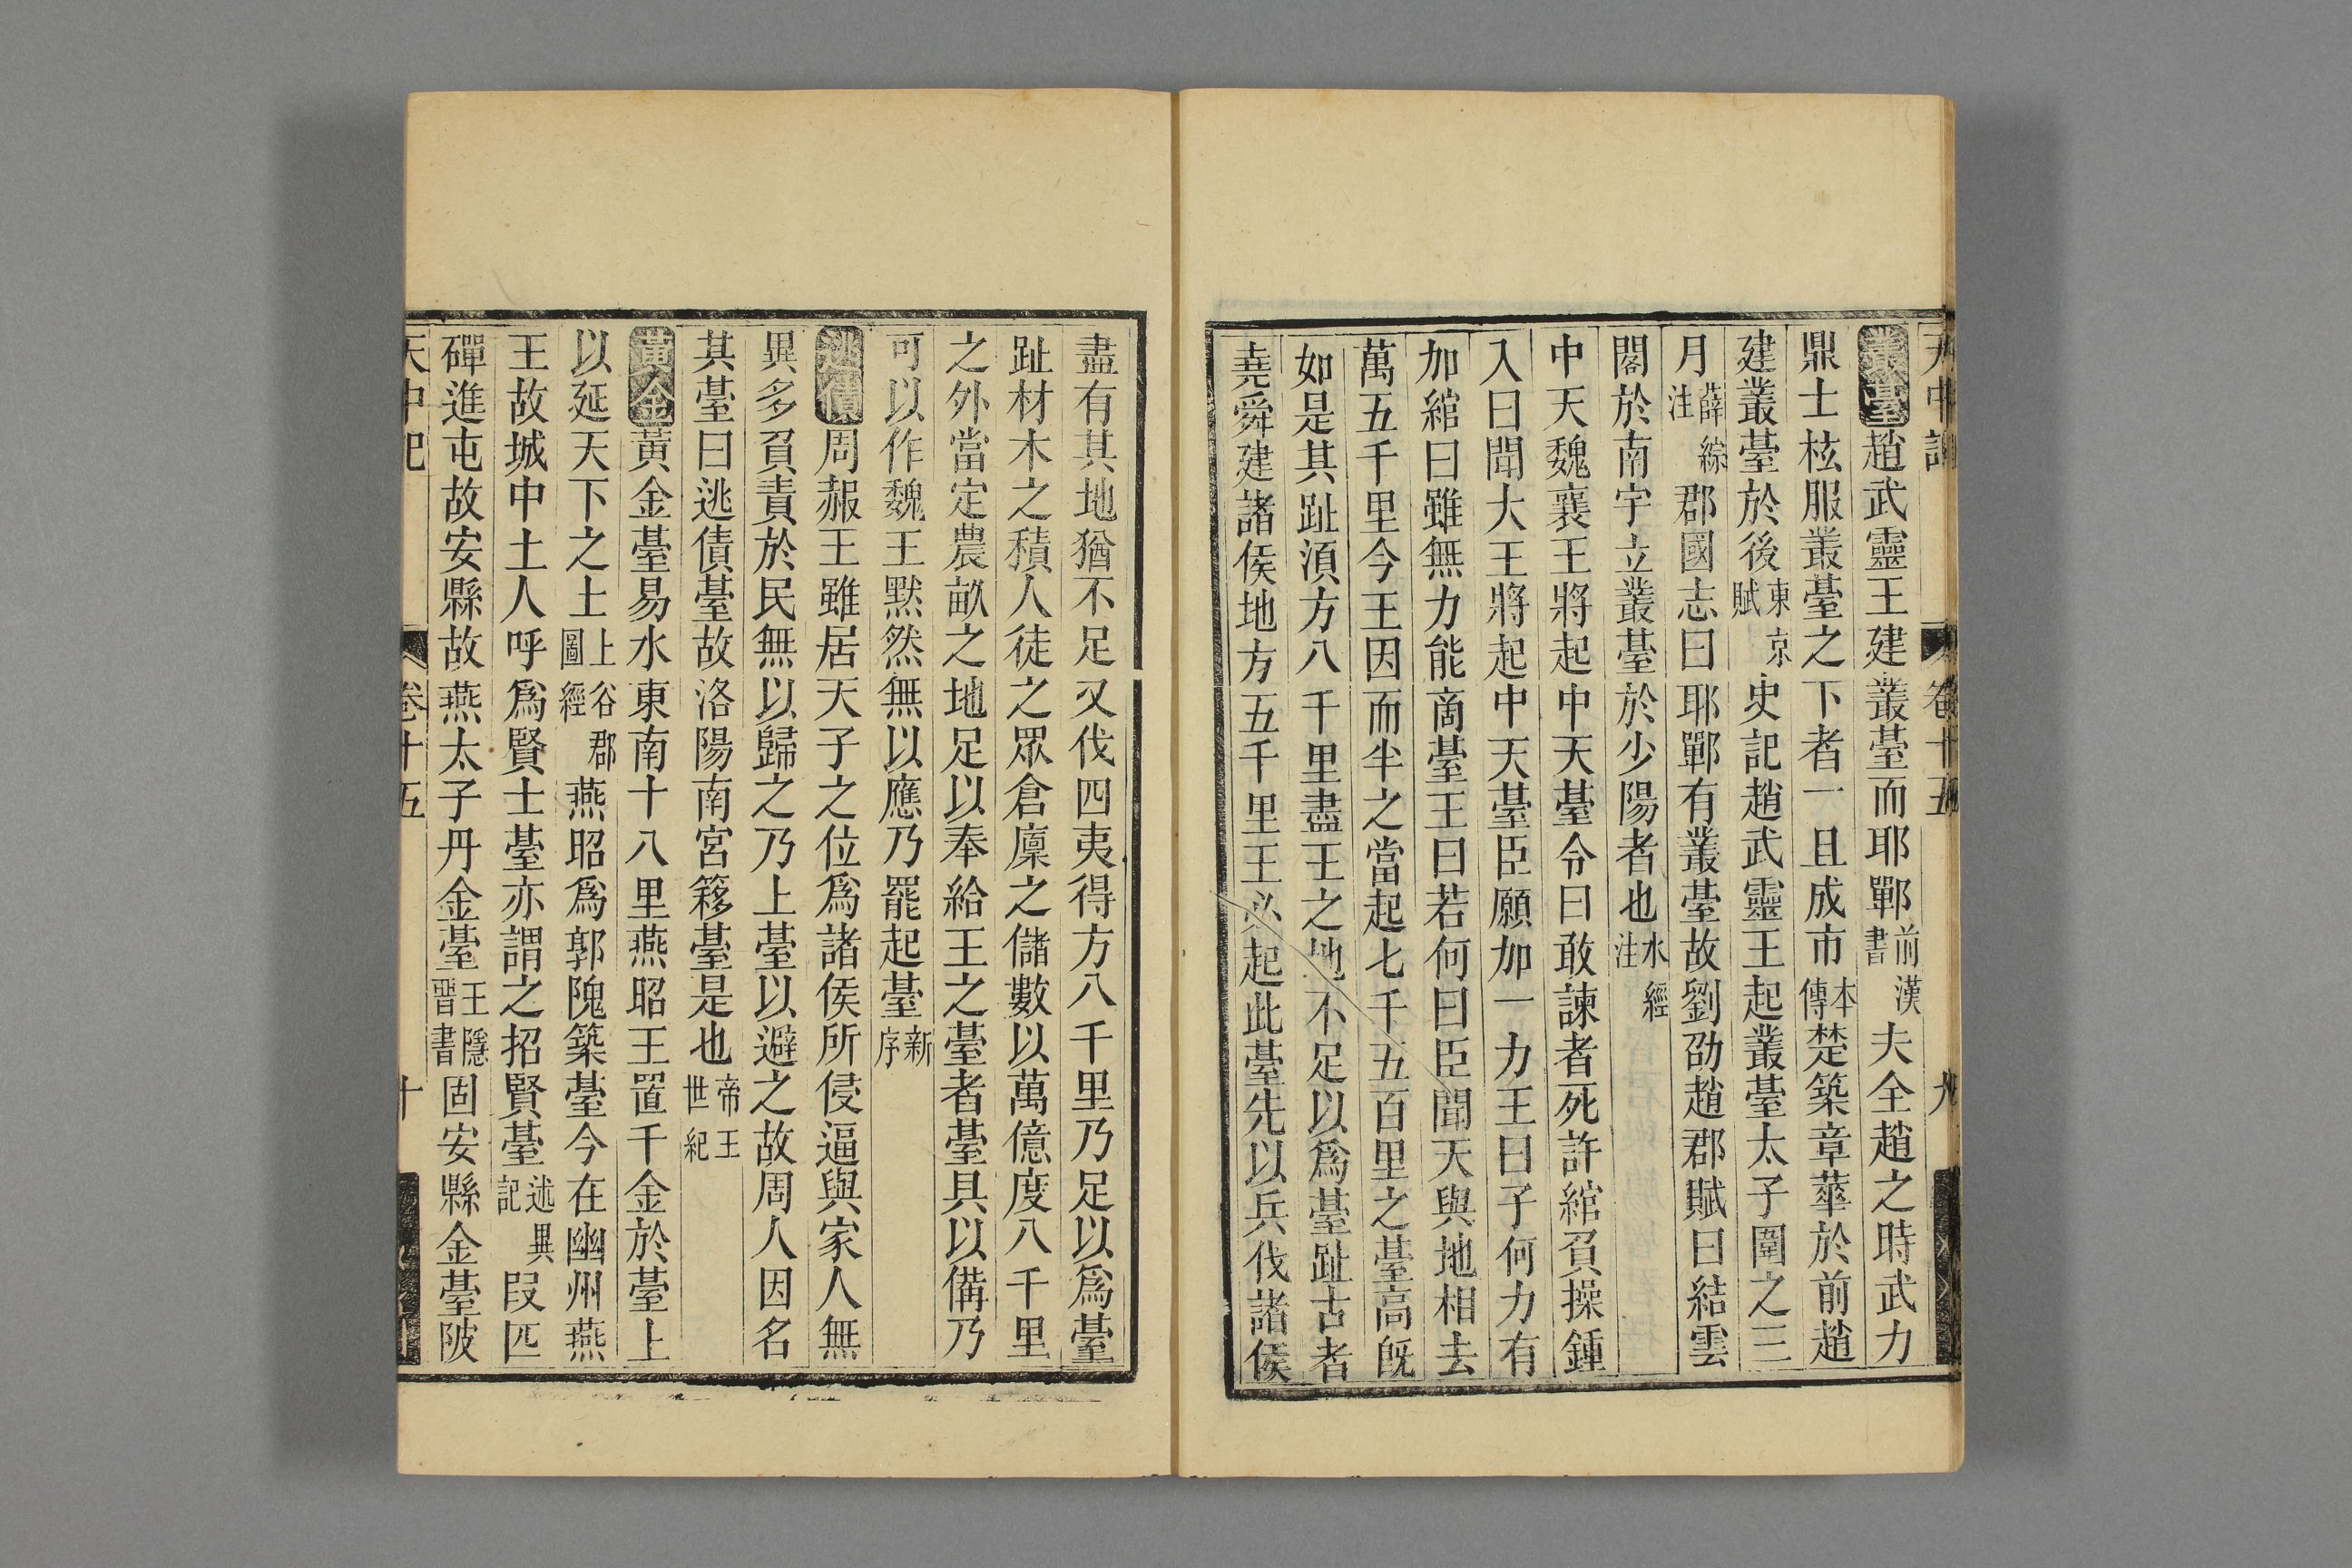 天中記 卷十五 九
叢臺趙武靈王建叢臺而耶鄲前漢書夫全趙之時武力
鼎士袨服叢臺之下者一旦成市本傳楚築章華於前趙
建叢臺於後東京賦史記趙武靈王起叢臺太子圍之三
月薛綜注郡國志曰耶鄲有叢臺故劉劭趙郡賦曰結雲
閣於南宇立叢臺於少陽者也水經注
中天魏襄王將起中天臺令曰敢諫者死許綰負操鍾
入曰聞大王將起中天臺臣願加一力王曰子何力有
加綰曰雖無力能啇臺王曰若何曰臣聞天與地相去
萬五千里今王因而半之當起七千五百里之臺高旣
如是其趾湏方八千里盡王之地不足以爲臺趾古者
堯舜建諸侯地方五千里王必起此臺先以兵伐諸侯
盡有其地猶不足又伐四夷得方八千里乃足以爲臺
趾材木之積人徒之眾倉廩之儲數以萬億度八千里
之外當定農畝之地足以奉給王之臺者臺具以備乃
可以作魏王默然無以應乃罷起臺新序
逃債周赧王雖居天子之位爲諸侯所侵逼與家人無
異多負責於民無以歸之乃上臺以避之故周人因名
其臺曰逃債臺故洛陽南宮簃臺是也帝王世紀
黃金黃金臺易水東南十八里燕昭王置千金於臺上
以延天下之士上谷郡圖經燕昭爲郭隗築臺今在幽州燕
王故城中土人呼爲賢士臺亦謂之招賢臺述異記段匹
磾進屯故安縣故燕太子丹金臺王隱晉書固安縣金臺陂
天中記 卷十五 十